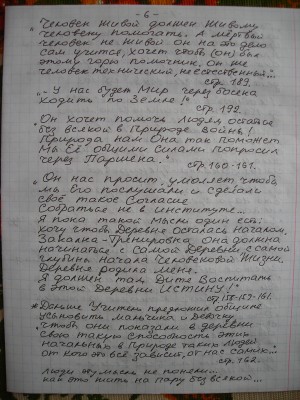 - 6 -
"Человек живой должен живому
человеку помогать. А мёртвый
человек не живой он на это дело
сам учится, хочет стать (он) был
этому горю помощник, он же
человек технический, неестественный..."
стр. 189.
"- У нас будет Мир через босека
ходить по Земле!"
стр. 192.
"Он хочет помочь людям остаться
без всякой в Природе войны!
Природа нам! Она так поможет
Мы Её общими силами попросим
через Паршека."
стр. 160-161.
"Он нас просит, умоляет чтобы
мы его послушали и сделали
своё такое согласие
Собраться не в институте...
Я пока такой мысли один есть:
хочу чтоб Деревня осталась началом.
Закалка-Тренировка она должна
начинаться с самой Деревни, с самой
глубины начала Человеческой жизни.
Деревня родила меня.
Я должен там Дитя воспитать
в этой Деревни ИСТИНУ!"
стр. 158-159-161.
* Дальше Учитель предложил общине
усыновить мальчика и девочку
"Чтобы они показали в деревни
свою такую способность этих
начальных в Природе таких людей
от кого это всё зависит, от нас самих..."
стр. 162.
Люди эту мысль не поняли...
как это жить на пару без всякой...